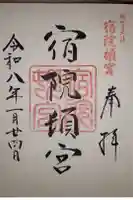 奉拝
宿院頓宮
令和八年一月廿四日
宿院頓宮